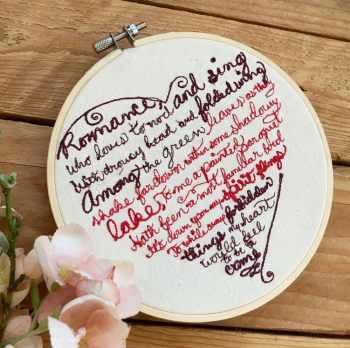 Romance, and sing
who loves to nod and folded wing
With drowsy head and
Among the green leaves as they
shake far down within some shadowy
lake To me a painted paroquet
Hath been a most familiar bird
its down upon my spirit flings
To while away forbidden
things my heart
would feel
to be a
crime